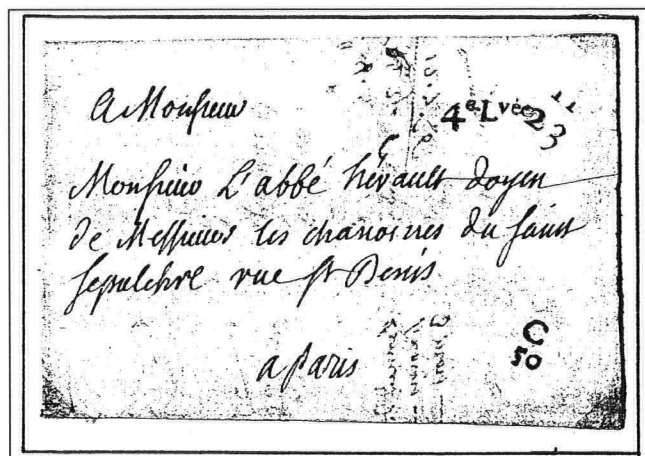 A Monsieur
4e Lvée 23
Monsieur L'abbé hérault doyen
de Messieurs les chanoines du saint
sepulchre rue St Denis
C
50
a paris